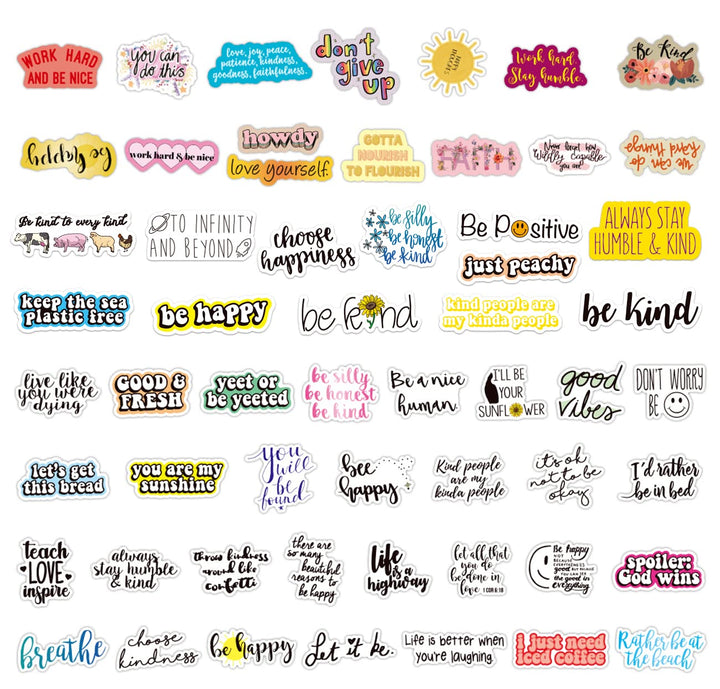 WORK HARD
AND BE NICE
you can
do this
love, joy, peace,
patience, kindness,
goodness, faithfulness.
don't
give
up
Work hard.
Stay humble.
Be Kind
Be Happy
work hard & be nice
howdy
love yourself.
GOTTA
NOURISH
TO FLOURISH
FAITH
Never forget how
Wildly Capable
you are
we can do
hard things
Be kind to every kind
TO INFINITY
AND BEYOND
choose
happiness
be silly
be honest
be kind
Be Positive
just peachy
ALWAYS STAY
HUMBLE & KIND
keep the sea
plastic free
be happy
be kind
kind people are
my kinda people
be kind
live like
you were
dying
GOOD &
FRESH
yeet or
be yeeted
be silly
be honest
be kind
Be a nice
human.
I'LL BE
YOUR
SUNFLOWER
good
vibes
DON'T WORRY
BE
let's get
this bread
you are my
sunshine
you
will
be
found
bee
happy
Kind people
are my
kinda people
it's ok
not to be
okay
I'd rather
be in bed
teach
LOVE
inspire
always
stay humble
& kind
throw kindness
around like
confetti
there are
so many
beautiful
reasons to
be happy
Life
is a
highway
let all that
you do
be done in
love 1 COR 6:18
Be happy
NOT
BECAUSE
EVERYTHING IS
good BUT BECAUSE
YOU CAN SEE
the good in
everything
spoiler:
God wins
breathe
choose
kindness
be happy
Let it be.
Life is better when
you're laughing.
i just need
iced coffee
Rather be at
the beach